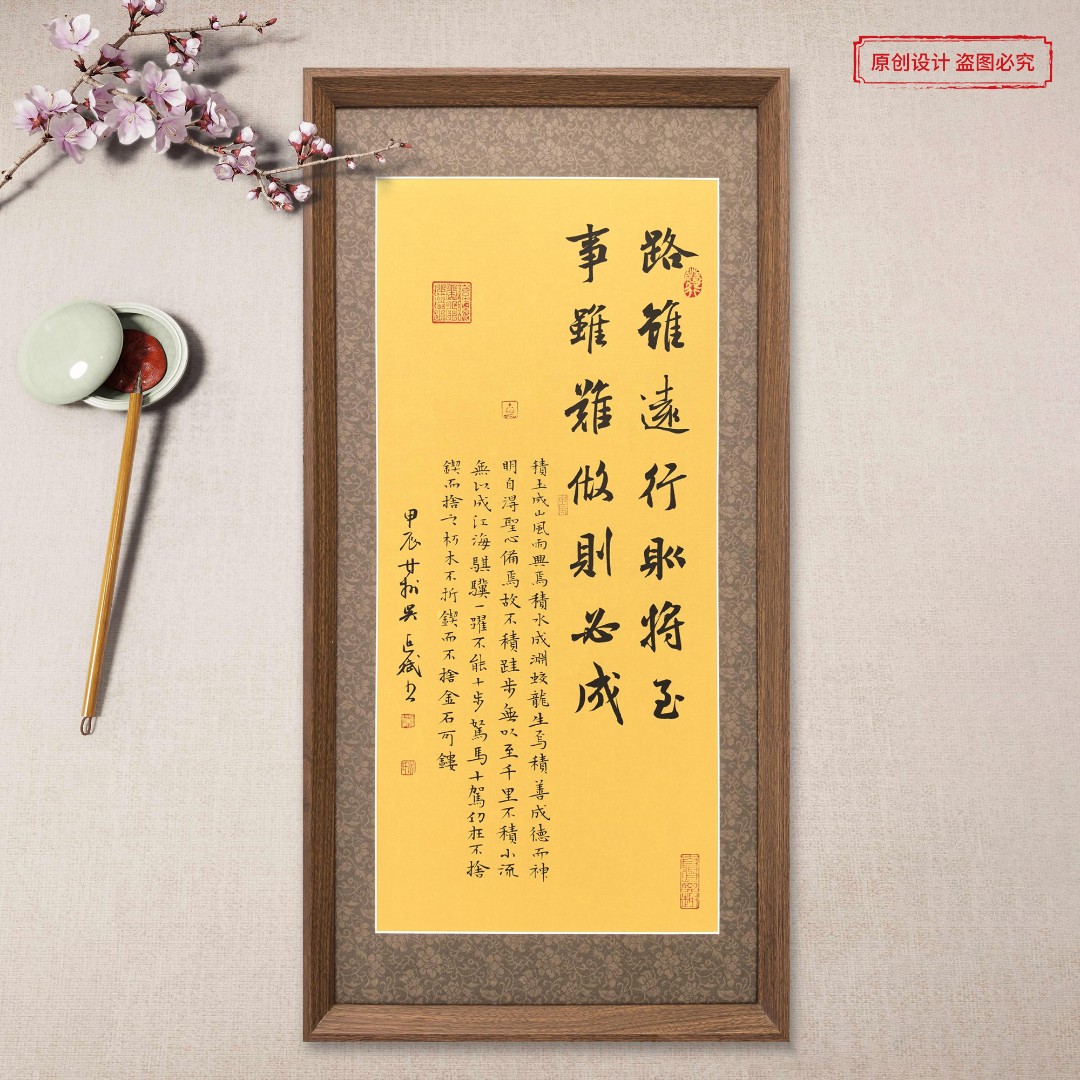 原创设计 盗图必究
路雖遠行則將至
事雖難做則必成
積土成山風雨興焉積水成淵蛟龍生焉積善成德而神
明自得聖心備焉故不積跬步無以至千里不積小流
無以成江海騏驥一躍不能十步駑馬十駕功在不捨
鍥而捨之朽木不折鍥而不捨金石可鏤
甲辰甘州吳書